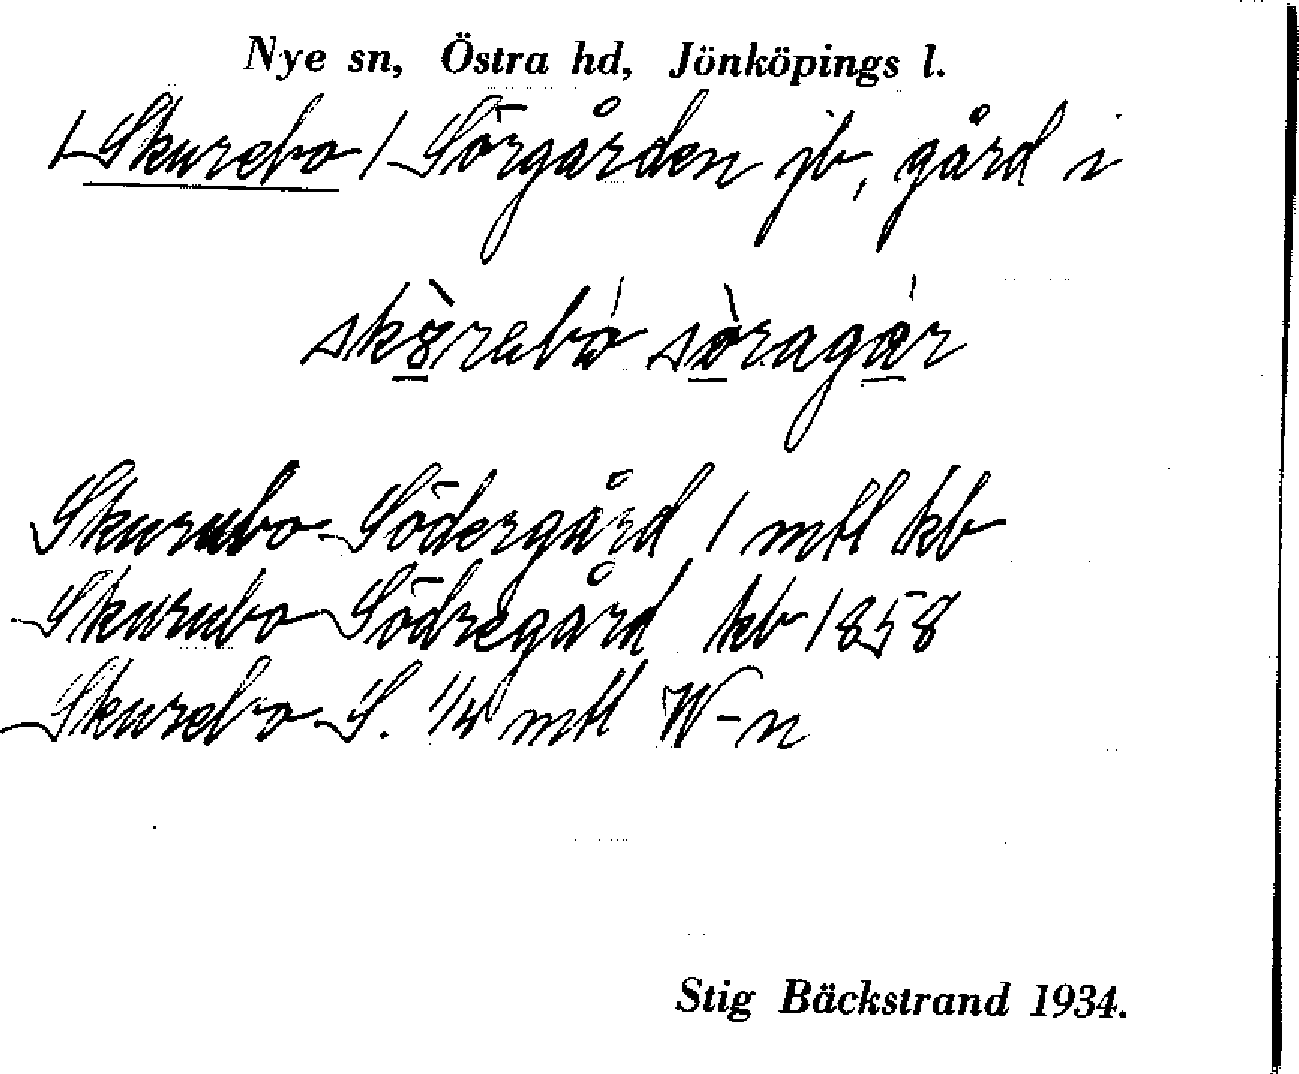 Nye sn, Östra hd, Jönköpings l.
/Skurebo/ Sörgården jb, gård i
skꝏ̀rebó sòragár
Skurubo-Södergård 1 mtl kb
Skurubo Södregård kb 1858
Skurebo S. 1/4 mtl W-n
Stig Bäckstrand 1934.